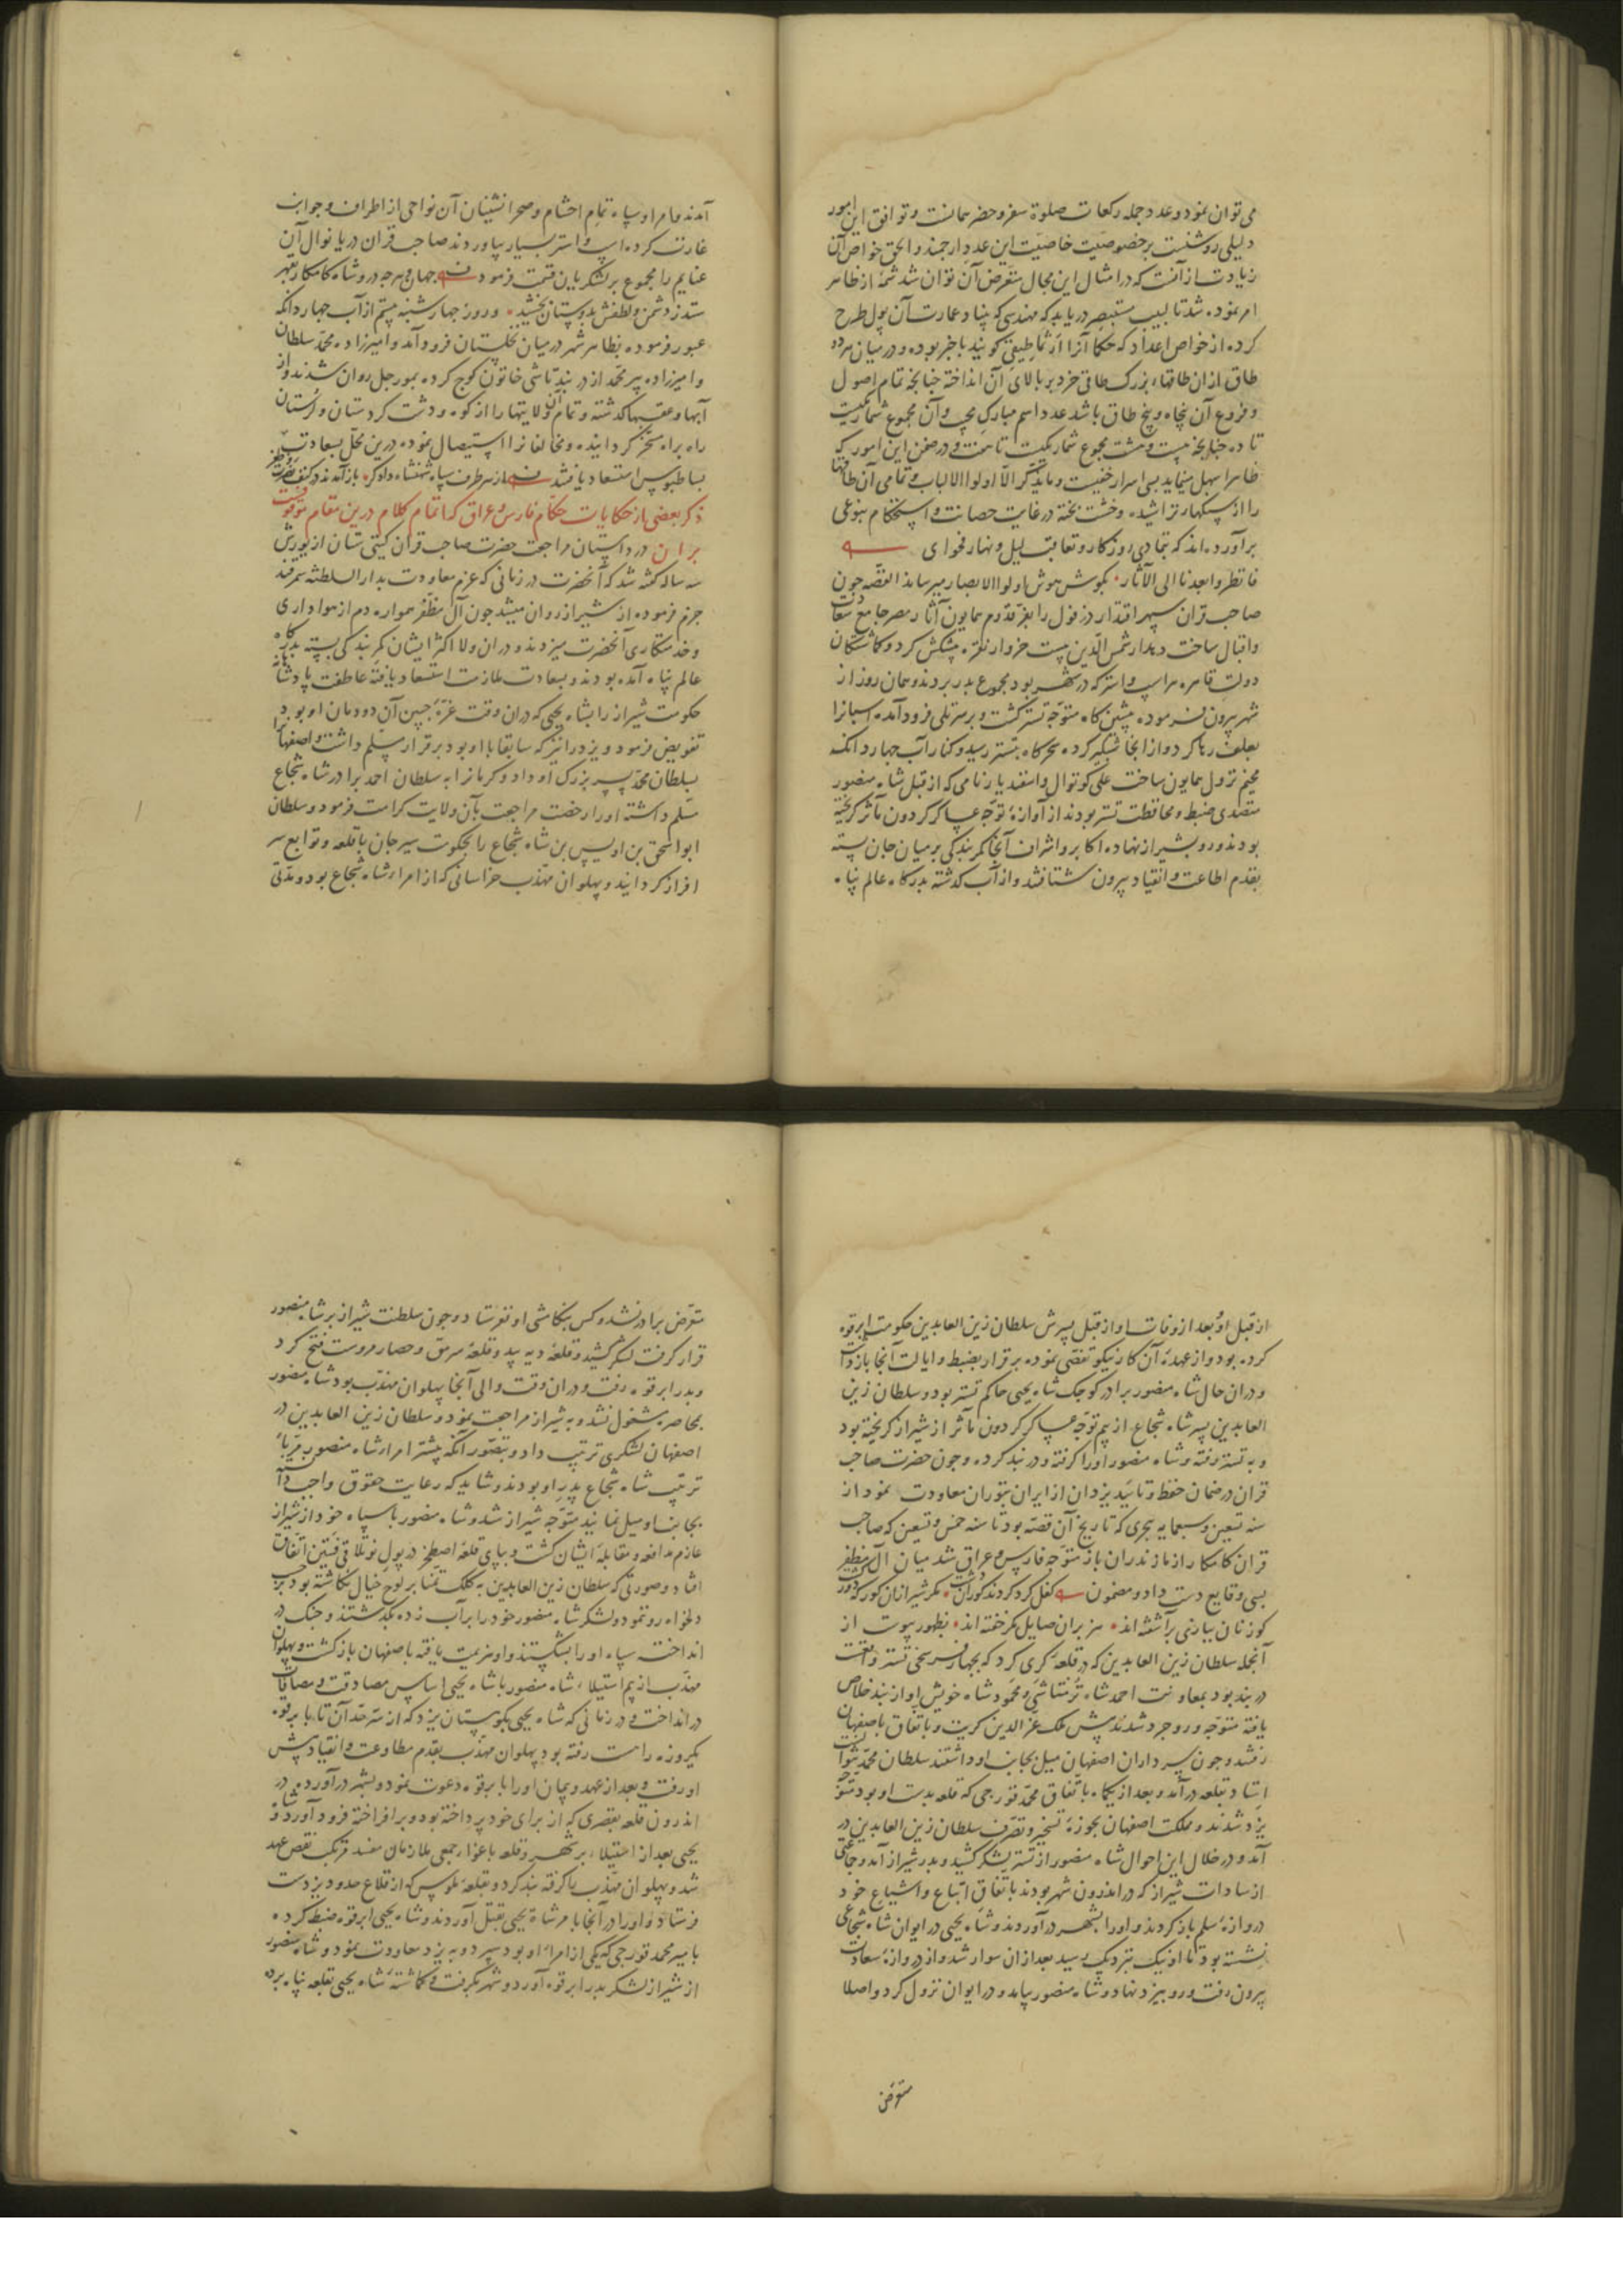 می توان نمود و عدد جمله رکعات صلوة سفر و حضر همانست و توافق این امور
دلیلی روشنست بر خصوصیت خاصیت این عدد ارجمند و الحق خواص آن
زیادت از آنست که در امثال این مجال متعرض آن توان شد شمهٔ از ظاهر
امر نموده شد تا لبیب مستبصر دریابد که مهندسی که بنیاد عمارت آن پول طرح
کرده از خواص اعداد که حکما آنرا ارثماطیقی کویند باخبر بوده و در میان هر دو
طاق ازان طاقهاء بزرک طاقی خرد بر بالای آن انداخته جنانجه تمام اصول
و فروع آن پنجاه و پنج طاق باشد عدد اسم مبارک مجیب و آن مجموع شمار یکیست
تا ده جنانجه بیست و هشت مجموع شمار یکیست تا هفت و در ضمن این امور که
ظاهرا سهل مینماید بسی اسرار خفیست و ما یذکر الا اولوا الالباب و تمامی آن طاقها
را از سنکهاء تراشیده و خشت پخته در غایت حصانت و استحکام بنوعی
برآورده اند که بتمادی روزکار و تعاقب لیل و نهار فحوای
فانظروا بعدنا الی الآثار بکوش هوش اولوا الابصار میرساند القصه جون
صاحب قران سپهر اقتدار دزفول را بفر قدوم همایون آثار مصر جامع سعادت
و اقبال ساخت دهدار شمس الدین بیست خروار نقره پیشکش کرد و کماشتکان
دولت قاهره هر اسپ و استر که در شهر بود مجموع بدر بردند و همان روز از
شهر بیرون فرموده پیشین کاه متوجه تستر کشت و بر سر تلی فرود آمده اسبانرا
بعلف رها کرد و از انجا شبکیر کرده سحرکاه بتستر رسید و کنار آب جهار دانکه
مخیم نزول همایون ساخت علی کوتوال و اسفندیار نامی که از قبل شاه منصور
متصدی ضبط و محافظت تستر بودند از آوازهٔ توجه عساکر کردون مآثر کریخته
بودند و رو بشیراز نهاده اکابر و اشراف آنجا کمر بندکی بر میان جان بسته
بقدم اطاعت و انقیاد بیرون شتافتند و از آب کذشته بدرکاه عالم پناه
آمدند و امرا و سپاه تمام احشام و صحرانشینان آن نواحی از اطراف و جوانب
غارت کرده اسپ و استر بسیار بیاوردند صاحب قران دریا نوال آن
غنایم را مجموع بر لشکریان قسمت فرمود جهان هرجه در و شاه کامکار بقهر
ستد ز دشمن و لطفش بدوستان بخشید و روز جهارشنبه بیستم از آب جهار دانکه
عبور فرموده بظاهر شهر در میان نخلستان فرود آمد و امیرزاده محمد سلطان
و امیرزاده پیر محمد از دربند تاشی خاتون کوج کرده بمورجل روان شدند و از
آبها و عقبها کذشته و تمام آن ولایتها را از کوه و دشت کردستان و لرستان
راه براه مسخر کردانیده و مخالفانرا استیصال نموده درین محل بسعادت
بساط بوس استسعاد یافتند از هر طرف سپاه شهنشاه دادکر باز آمدند در کنف نصرت و ظفر
ذکر بعضی از حکایات حکام فارس و عراق که اتمام کلام درین مقام موقوفست
بران در داستان مراجعت حضرت صاحب قران کیتی ستان از یورش
سه ساله کفته شد که آنحضرت در زمانی که عزم معاودت بدار السلطنه سمرقند
جزم فرموده از شیراز روان میشد جون آل مظفر همواره دم از هواداری
و خدمتکاری آنحضرت میزدند و دران ولا اکثر ایشان کمر بندکی بسته بدرکاه
عالم پناه آمده بودند و بسعادت ملازمت استسعاد یافته عاطفت پادشاهانه
حکومت شیراز را بشاه یحیی که دران وقت غرهٔ جبین آن دودمان او بود
تفویض فرمود و یزد را نیز که سابقا با او بود برقرار مسلم داشت و اصفهانرا
بسلطان محمد پسر بزرک او داد و کرمانرا به سلطان احمد برادر شاه شجاع
مسلم داشته او را رخصت مراجعت بآن ولایت کرامت فرمود و سلطان
ابو اسحق بن اویس بن شاه شجاع را بحکومت سیرجان با قلعه و توابع سر
افراز کردانید و پهلوان مهذب خراسانی که از امراء شاه شجاع بود و مدتی
از قبل او و بعد از وفات او از قبل پسرش سلطان زین العابدین حکومت ابرقوه
کرده بود و از عهدهٔ آن کار نیکو تفصی نموده برقرار بضبط و ایالت آنجا بازداشت
و دران حال شاه منصور برادر کوجک شاه یحیی حاکم تستر بود و سلطان زین
العابدین پسر شاه شجاع از بیم توجه عساکر کردون مآثر از شیراز کریخته بود
و به تستر رفته و شاه منصور او را کرفته و در بند کرده و جون حضرت صاحب
قران در ضمان حفظ و تأیید یزدان از ایران بتوران معاودت نمود از
سنه تسعین و سبعمایه هجری که تاریخ آن قصه بود تا سنه خمس و تسعین که صاحب
قران کامکار از مازندران باز متوجه فارس و عراق شد میان آل مظفر
بسی وقایع دست داد و مضمون
کوزنان ببازی برآشفته اند هزبران صایل مکر خفته اند بظهور پیوست از
آنجمله سلطان زین العابدین که در قلعهٔ کری کرد که بجهار فرسخی تستر واقعست
در بند بود بمعاونت احمد شاه ترمتاشی و محمود شاه خویش او از بند خلاص
یافته متوجه وروجرد شدند پیش ملک عز الدین کریت و باتفاق باصفهان
رفتند و جون سرداران اصفهان میل بجانب او داشتند سلطان محمد نتوانست
ایستاد بقلعه درآمد و بعد از یکماه باتفاق محمد قورجی که قلعه بدست او بود متوجه
یزد شدند و مملکت اصفهان بحوزهٔ تسخیر و تصرف سلطان زین العابدین در
آمد و در خلال این احوال شاه منصور از تستر لشکر کشید و بدر شیراز آمد و جماعتی
از سادات شیراز که در اندرون شهر بودند باتفاق اتباع و اشیاع خود
دروازهٔ سلم باز کردند و او را بشهر درآوردند و شاه یحیی در ایوان شاه شجاعی
نشسته بود تا او نیک نزدیک رسید بعد ازان سوار شد و از دروازهٔ سعادت
بیرون رفت و رو بیزد نهاد و شاه منصور بیامد و در ایوان نزول کرد و اصلا
متعرض
متعرض برادر نشد و کس بتکامشی او نفرستاد و جون سلطنت شیراز بر شاه منصور
قرار کرفت لشکر کشید و قلعهٔ دیه بید و قلعهٔ سرمق و حصار مروست فتح کرد
و بدر ابرقوه رفت و دران وقت والی آنجا پهلوان مهذب بود شاه منصور
بمحاصره مشغول نشد و به شیراز مراجعت نمود و سلطان زین العابدین در
اصفهان لشکری ترتیب داد و بتصور آنکه بیشتر امراء شاه منصور مربای
ترتیب شاه شجاع پدر او بودند و شاید که رعایت حقوق واجب دانسته
بجانب او میل نمایند متوجه شیراز شد و شاه منصور با سپاه خود از شیراز
عازم مدافعه و مقابلهٔ ایشان کشت و بپای قلعهٔ اصطخر در پول نو تلاقی فئتین اتفاق
افتاد و صورتی که سلطان زین العابدین به کلک تمنا بر لوح خیال نکاشته بود بر حسب
دلخواه رو ننمود و لشکر شاه منصور خود را بر آب زده بکذشتند و جنک در
انداخته سپاه او را بشکستند و او هزیمت یافته باصفهان بازکشت و پهلوان
مهذب از بیم استیلاء شاه منصور با شاه یحیی اساس مصادقت و مصافات
در انداخت و در زمانی که شاه یحیی بکوهستان یزد که از سرحد آن تا بابرقوه
یکروزه راهست رفته بود پهلوان مهذب بقدم مطاوعت و انقیاد پیش
او رفت و بعد از عهد و پیمان او را بابرقوه دعوت نمود و بشهر درآورده در
اندرون قلعه بقصری که از برای خود پرداخته بود و برافراخته فرود آورد و شاه
یحیی بعد از استیلاء بر شهر و قلعه باغواء جمعی ملازمان مفسد مرتکب نقص عهد
شد و پهلوان مهذب را کرفته بند کرد و بقلعهٔ ملوس که از قلاع حدود یزدست
فرستاد و او را در آنجا بامر شاه یحیی بقتل آوردند و شاه یحیی ابرقوه ضبط کرده
با میر محمد قورجی که یکی از امراء او بود سپرد و به یزد معاودت نمود و شاه منصور
از شیراز لشکر بدر ابرقوه آورد و شهر بکرفت و کماشتهٔ شاه یحیی بقلعه پناه برده